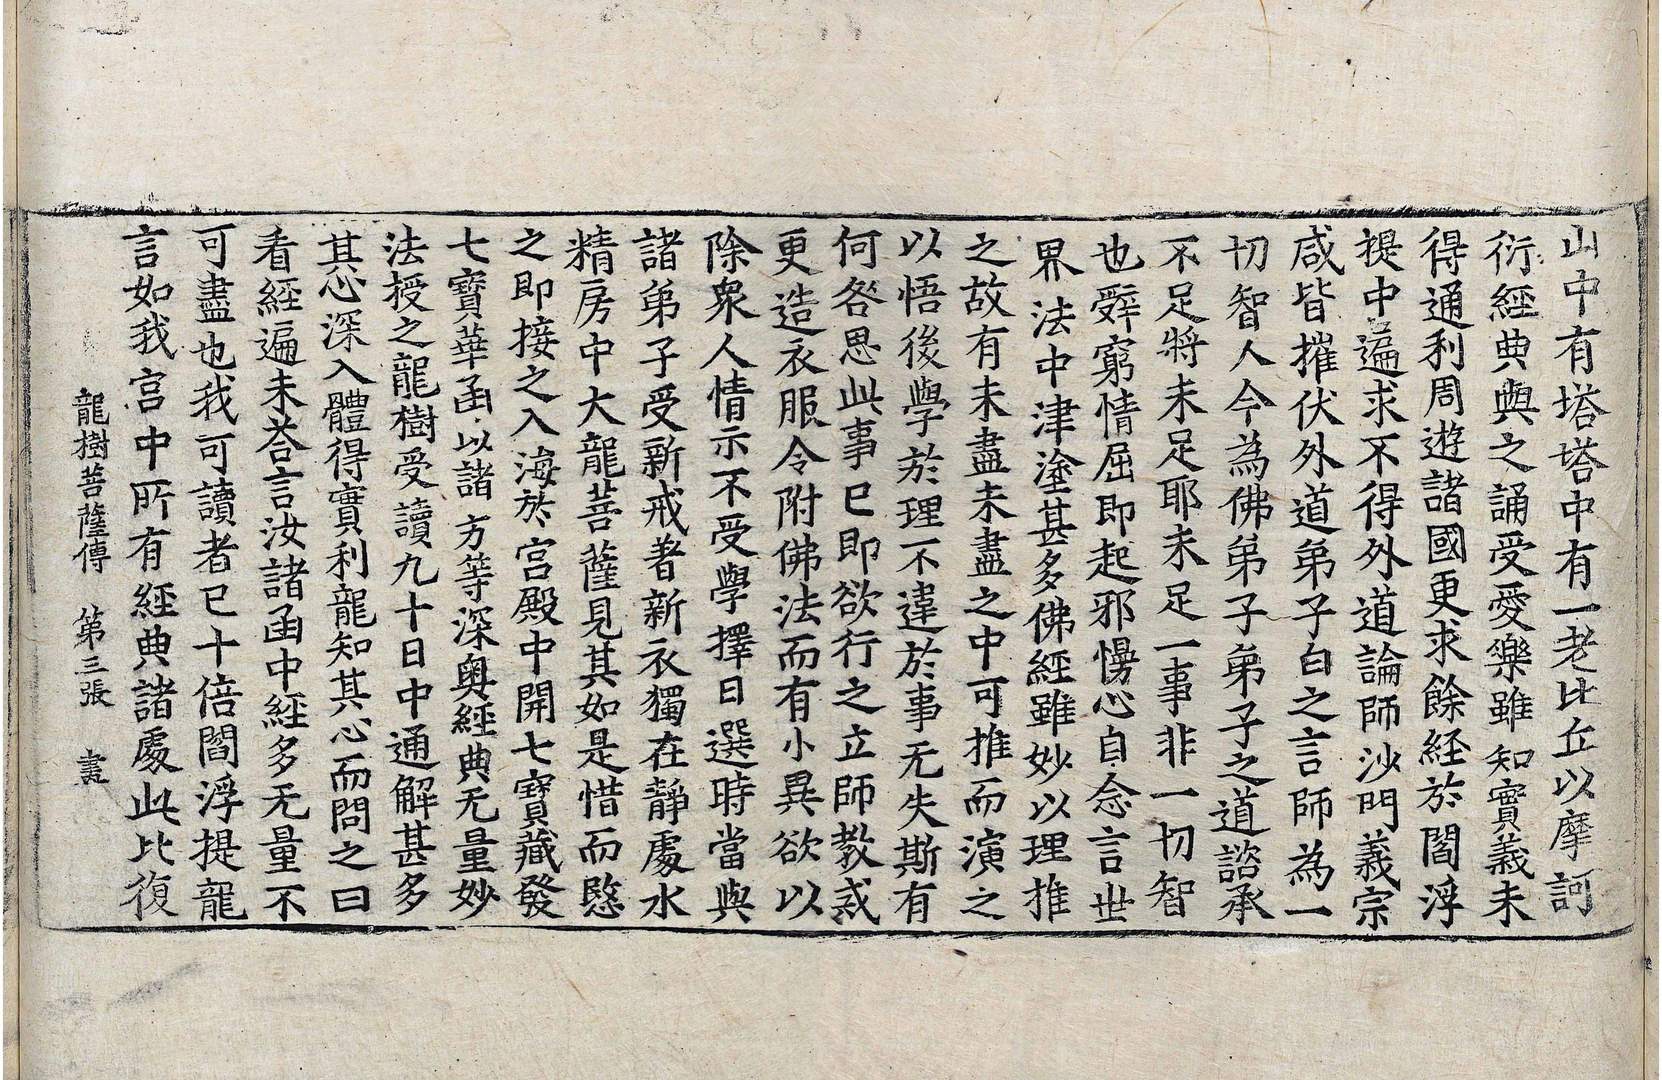 山中有塔塔中有一老比丘以摩訶
衍經典與之誦受愛樂雖知實義未
得通利周遊諸國更求餘經於閻浮
提中遍求不得外道論師沙門義宗
咸皆摧伏外道弟子白之言師為一
切智人今為佛弟子弟子之道諮承
不足將未足耶未足一事非一切智
也辭窮情屈即起邪慢心自念言世
界法中津塗甚多佛經雖妙以理推
之故有未盡未盡之中可推而演之
以悟後學於理不違於事无失斯有
何咎思此事已即欲行之立師教戒
更造衣服令附佛法而有小異欲以
除衆人情示不受學擇日選時當與
諸弟子受新戒著新衣獨在靜處水
精房中大龍菩薩見其如是惜而愍
之即接之入海於宮殿中開七寶藏發
七寶華函以諸方等深奥經典无量妙
法授之龍樹受讀九十日中通解甚多
其心深入體得實利龍知其心而問之曰
看經遍未荅言汝諸函中經多无量不
可盡也我可讀者已十倍閻浮提龍
言如我宮中所有經典諸處此比復
龍樹菩薩傳 第三張 畫